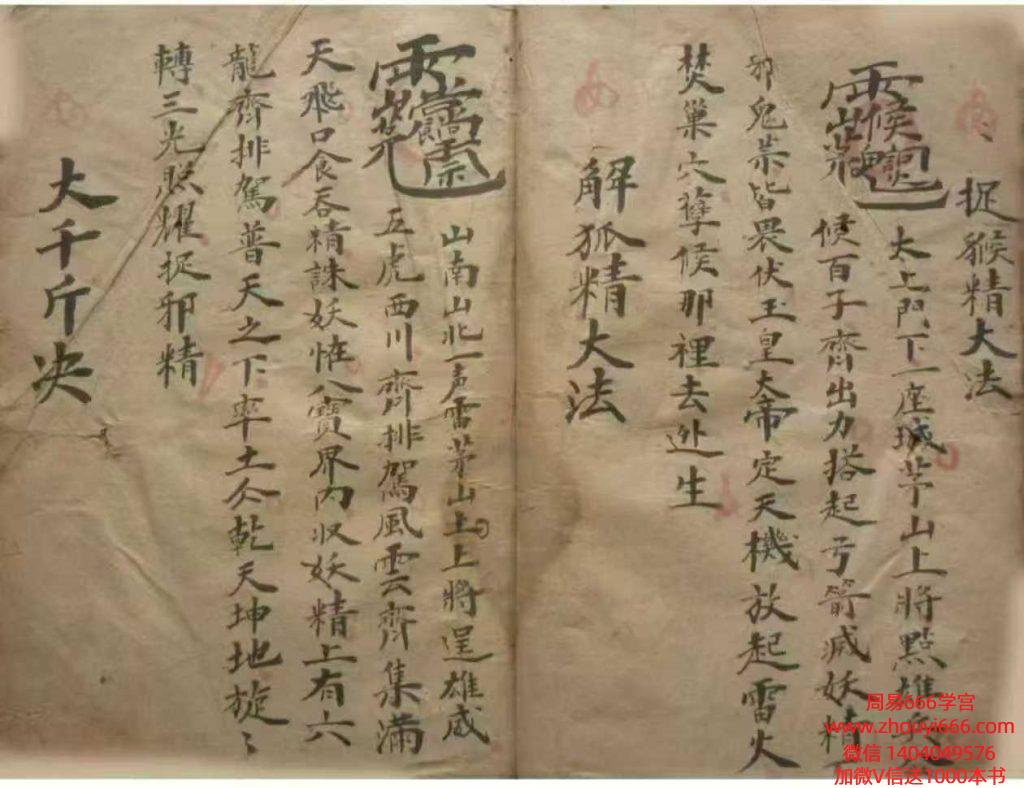 捉猴精大法
太上門下一座城茅山上將點雄兵
候百子齊出力搭起弓箭滅妖精
邪鬼祟皆畏伏玉皇大帝定天機放起雷火
焚巢穴孽候那裡去迯生
解狐精大法
山南山北一声雷茅山上上將逞雄威
五虎西川齊排駕風雲齊集滿
天飛口食吞精誅妖恠八寶界內収妖精上有六
龍齊排駕普天之下率土仒乾天坤地旋〻
轉三光照耀捉邪精
大千斤决
周易666学宫
www.zhouyi666.com
微信 1404049576
加微V信送1000本书